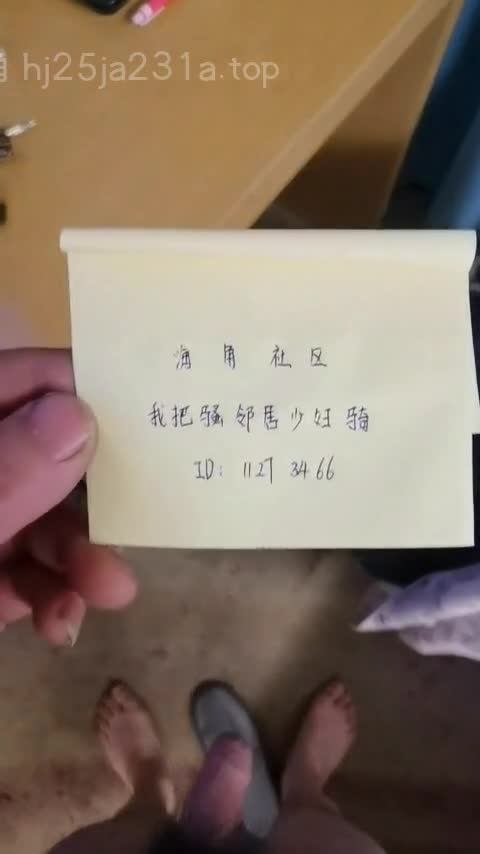 hj25ja231a.top
海角社区
我把骚邻居少妇骑
ID: 1127 3466